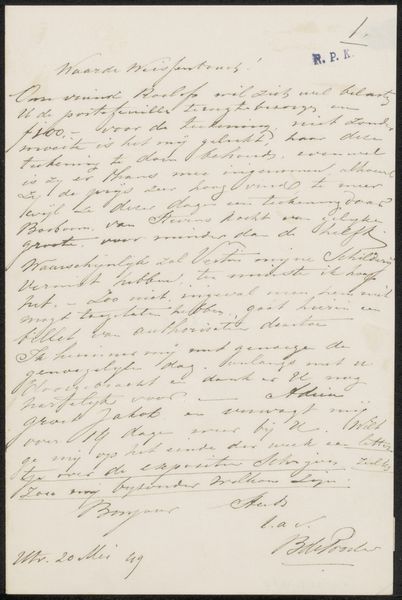 1.
R. P. K.
Waarde Weissenbruch!
Onze vriend Roelofs wil zich wel belasten
U de portefeuille terug te bezorgen en
f100,— voor de teekening, niet zonder
moeite is het mij gelukt, haar deze
teekening te doen behouden, evenwel
is zij er thans mee ingenomen, alhoewel
Zij de prijs zeer hoog vond te meer
wijl ze dezer dagen een teekening van
Bosboom, van kocht van gelijke
grootte, voor minder dan de helft.
Waarschijnlijk zal mijne Schilderij
verkocht hebben, ten minste ik hoop
het. — Zoo niet, ingeval men hem wil
mogt hebben, gaat hierin een
billet van authorisatie daartoe
Ik herinner mij met genoegen de
genoegelijke dag onlangs met U
doorgebragt en dank er U nog
hartelijk voor. — Adieu
groet Jakob en verwagt mij
over 14 dage weer bij U. Wilt
ge mij op het einde der week een lettertje
over de expositie Schrijven, zult
Zou mij bijzonder welkom zijn.
Bonjour
t.a.v.
Utr. 20 Mei 49